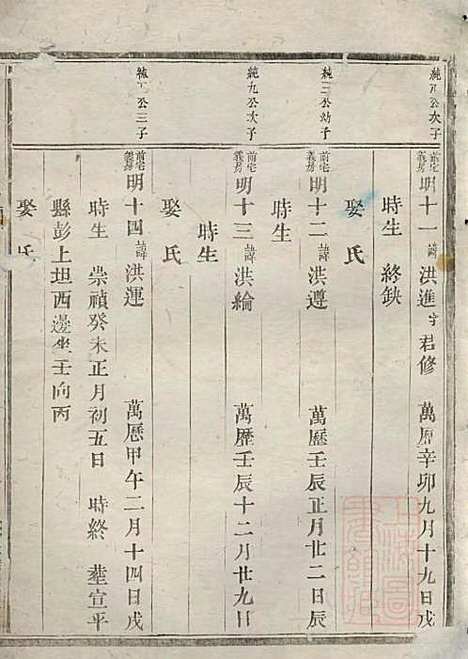 純九公次子
前宅義房 明十一 諱 洪進 字 君修 萬歷辛卯九月十九日戌
時生 終缺
娶氏
純三公幼子
前宅義房 明十二 諱 洪遵 萬歷壬辰正月廿二日辰
時生
純九公次子
前宅義房 明十三 諱 洪綸 萬歷壬辰十二月廿九日
時生
娶氏
公三子
前宅義房 明十四 諱 洪運 萬歷甲午二月十四日戌
時生 崇禎癸未正月初五日 時終 塟宣平
縣彭上坦西邊坐壬向丙
娶氏